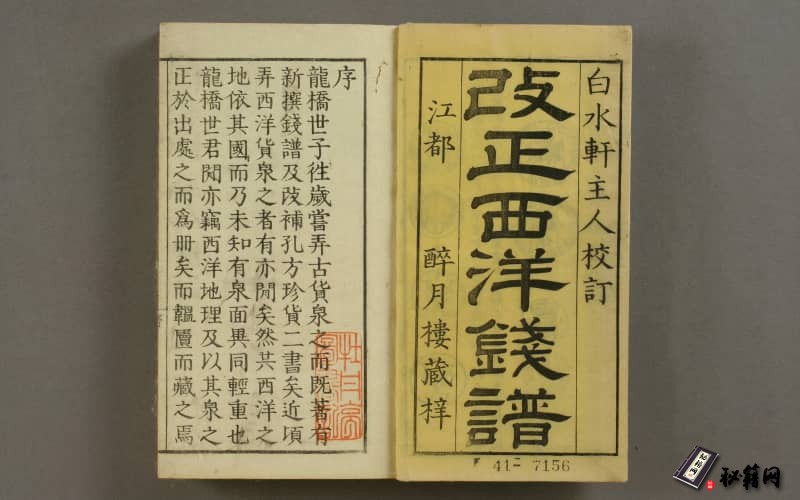 白水軒主人校訂
改正西洋錢譜
江都 醉月樓藏梓
41- 7156
序
龍橋世子徃歲嘗弄古貨泉之而既著有
新撰錢譜及改補孔方珍貨二書矣近頃
弄西洋貨泉之者有亦閒矣然其西洋之
地依其國而乃未知有泉面異同輕重也
龍橋世君閔亦竊西洋地理及以其泉之
正於出處之而為冊矣而韞匵而藏之焉
秘籍网